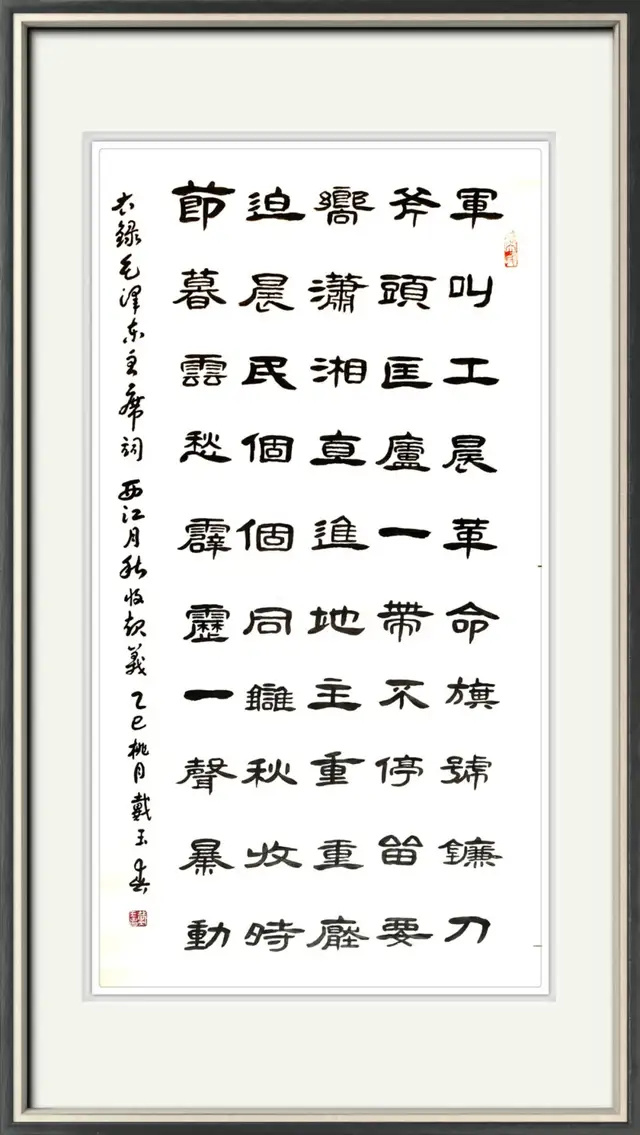 軍叫工晨革命旗號鐮刀
斧頭匡廬一帶不停留要
嚮瀟湘直進地主重重壓
迫晨民個個同讎秋收時
節暮雲愁霹靂一聲暴動
右錄毛泽东主席詞 西江月秋收起義 乙巳桃月 戴玉春